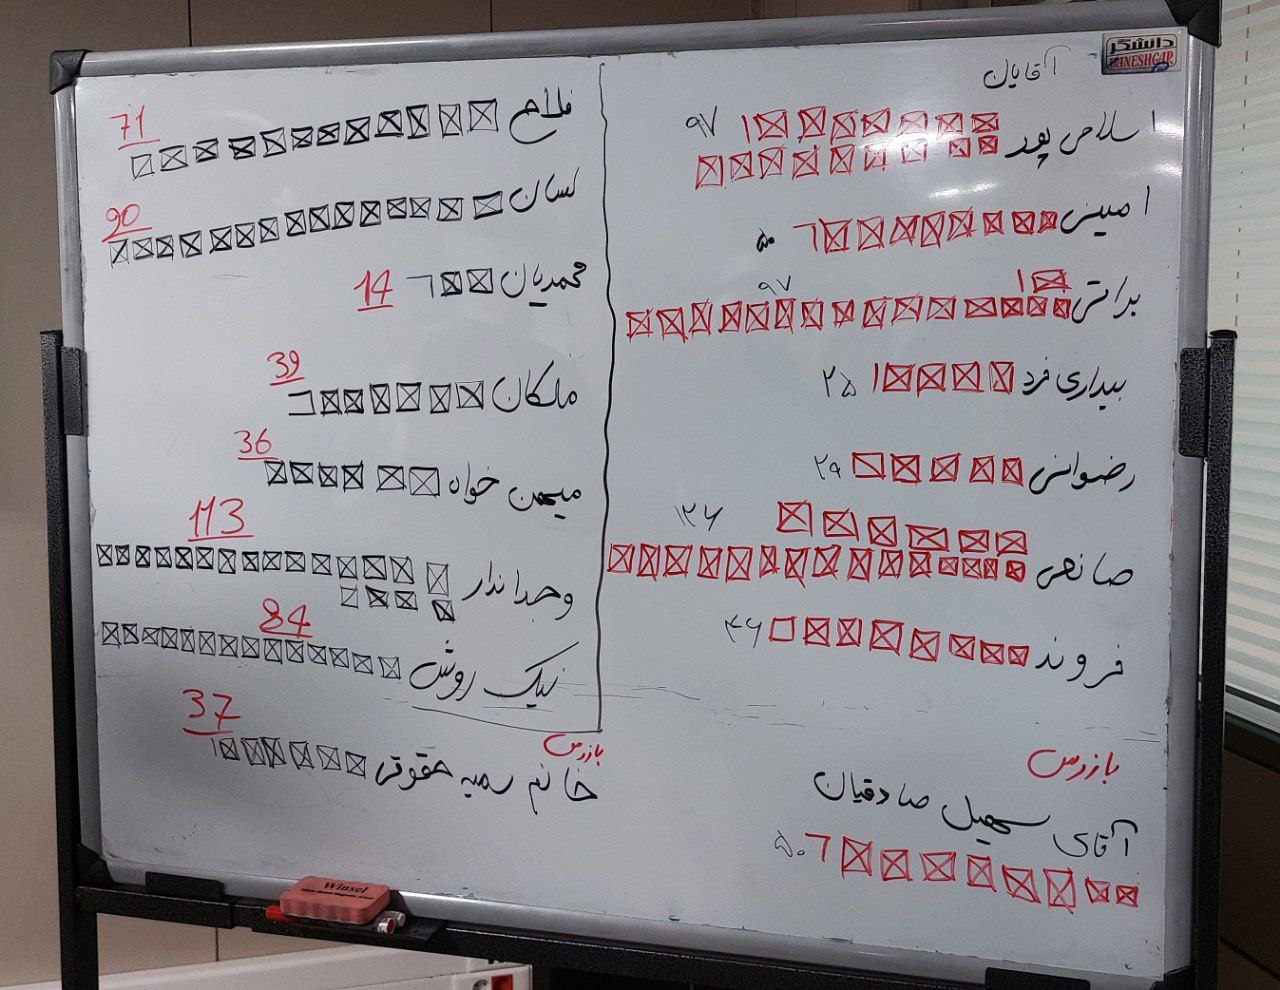 دانشگر
DANESHGAR
آقایان
اسلامی پور ۹۷
امینی ۵۰
براتی ۹۷
بیداری فرد ۲۵
رضوانی ۲۹
صانعی ۱۲۶
فروند ۴۶
بازرس
آقای سهیل صادقیان
۵۰
فلاح 71
لسان 90
محمدیان 14
ملکان 39
میهن خواه 36
وجداندار 113
نیک روش 84
بازرس
خانم سمیه حقوقی 37
Winsel